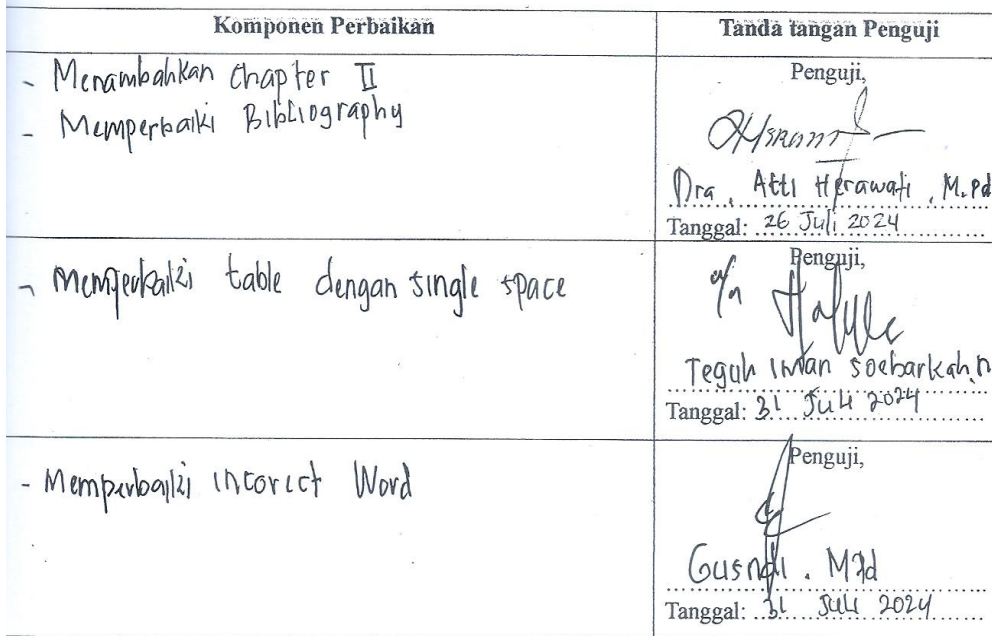 Komponen Perbaikan
Tanda tangan Penguji
- Menambahkan Chapter II
- Memperbaiki Bibliography
Penguji,
Dra. Atti Herawati, M.Pd
Tanggal: 26 Juli 2024
- Memperbaiki table dengan single space
Penguji,
a/n
Teguh Iman
Tanggal: 31 Juli 2024
- Memperbaiki incorect Word
Penguji,
Gusndi. M.Pd
Tanggal: 31 Juli 2024